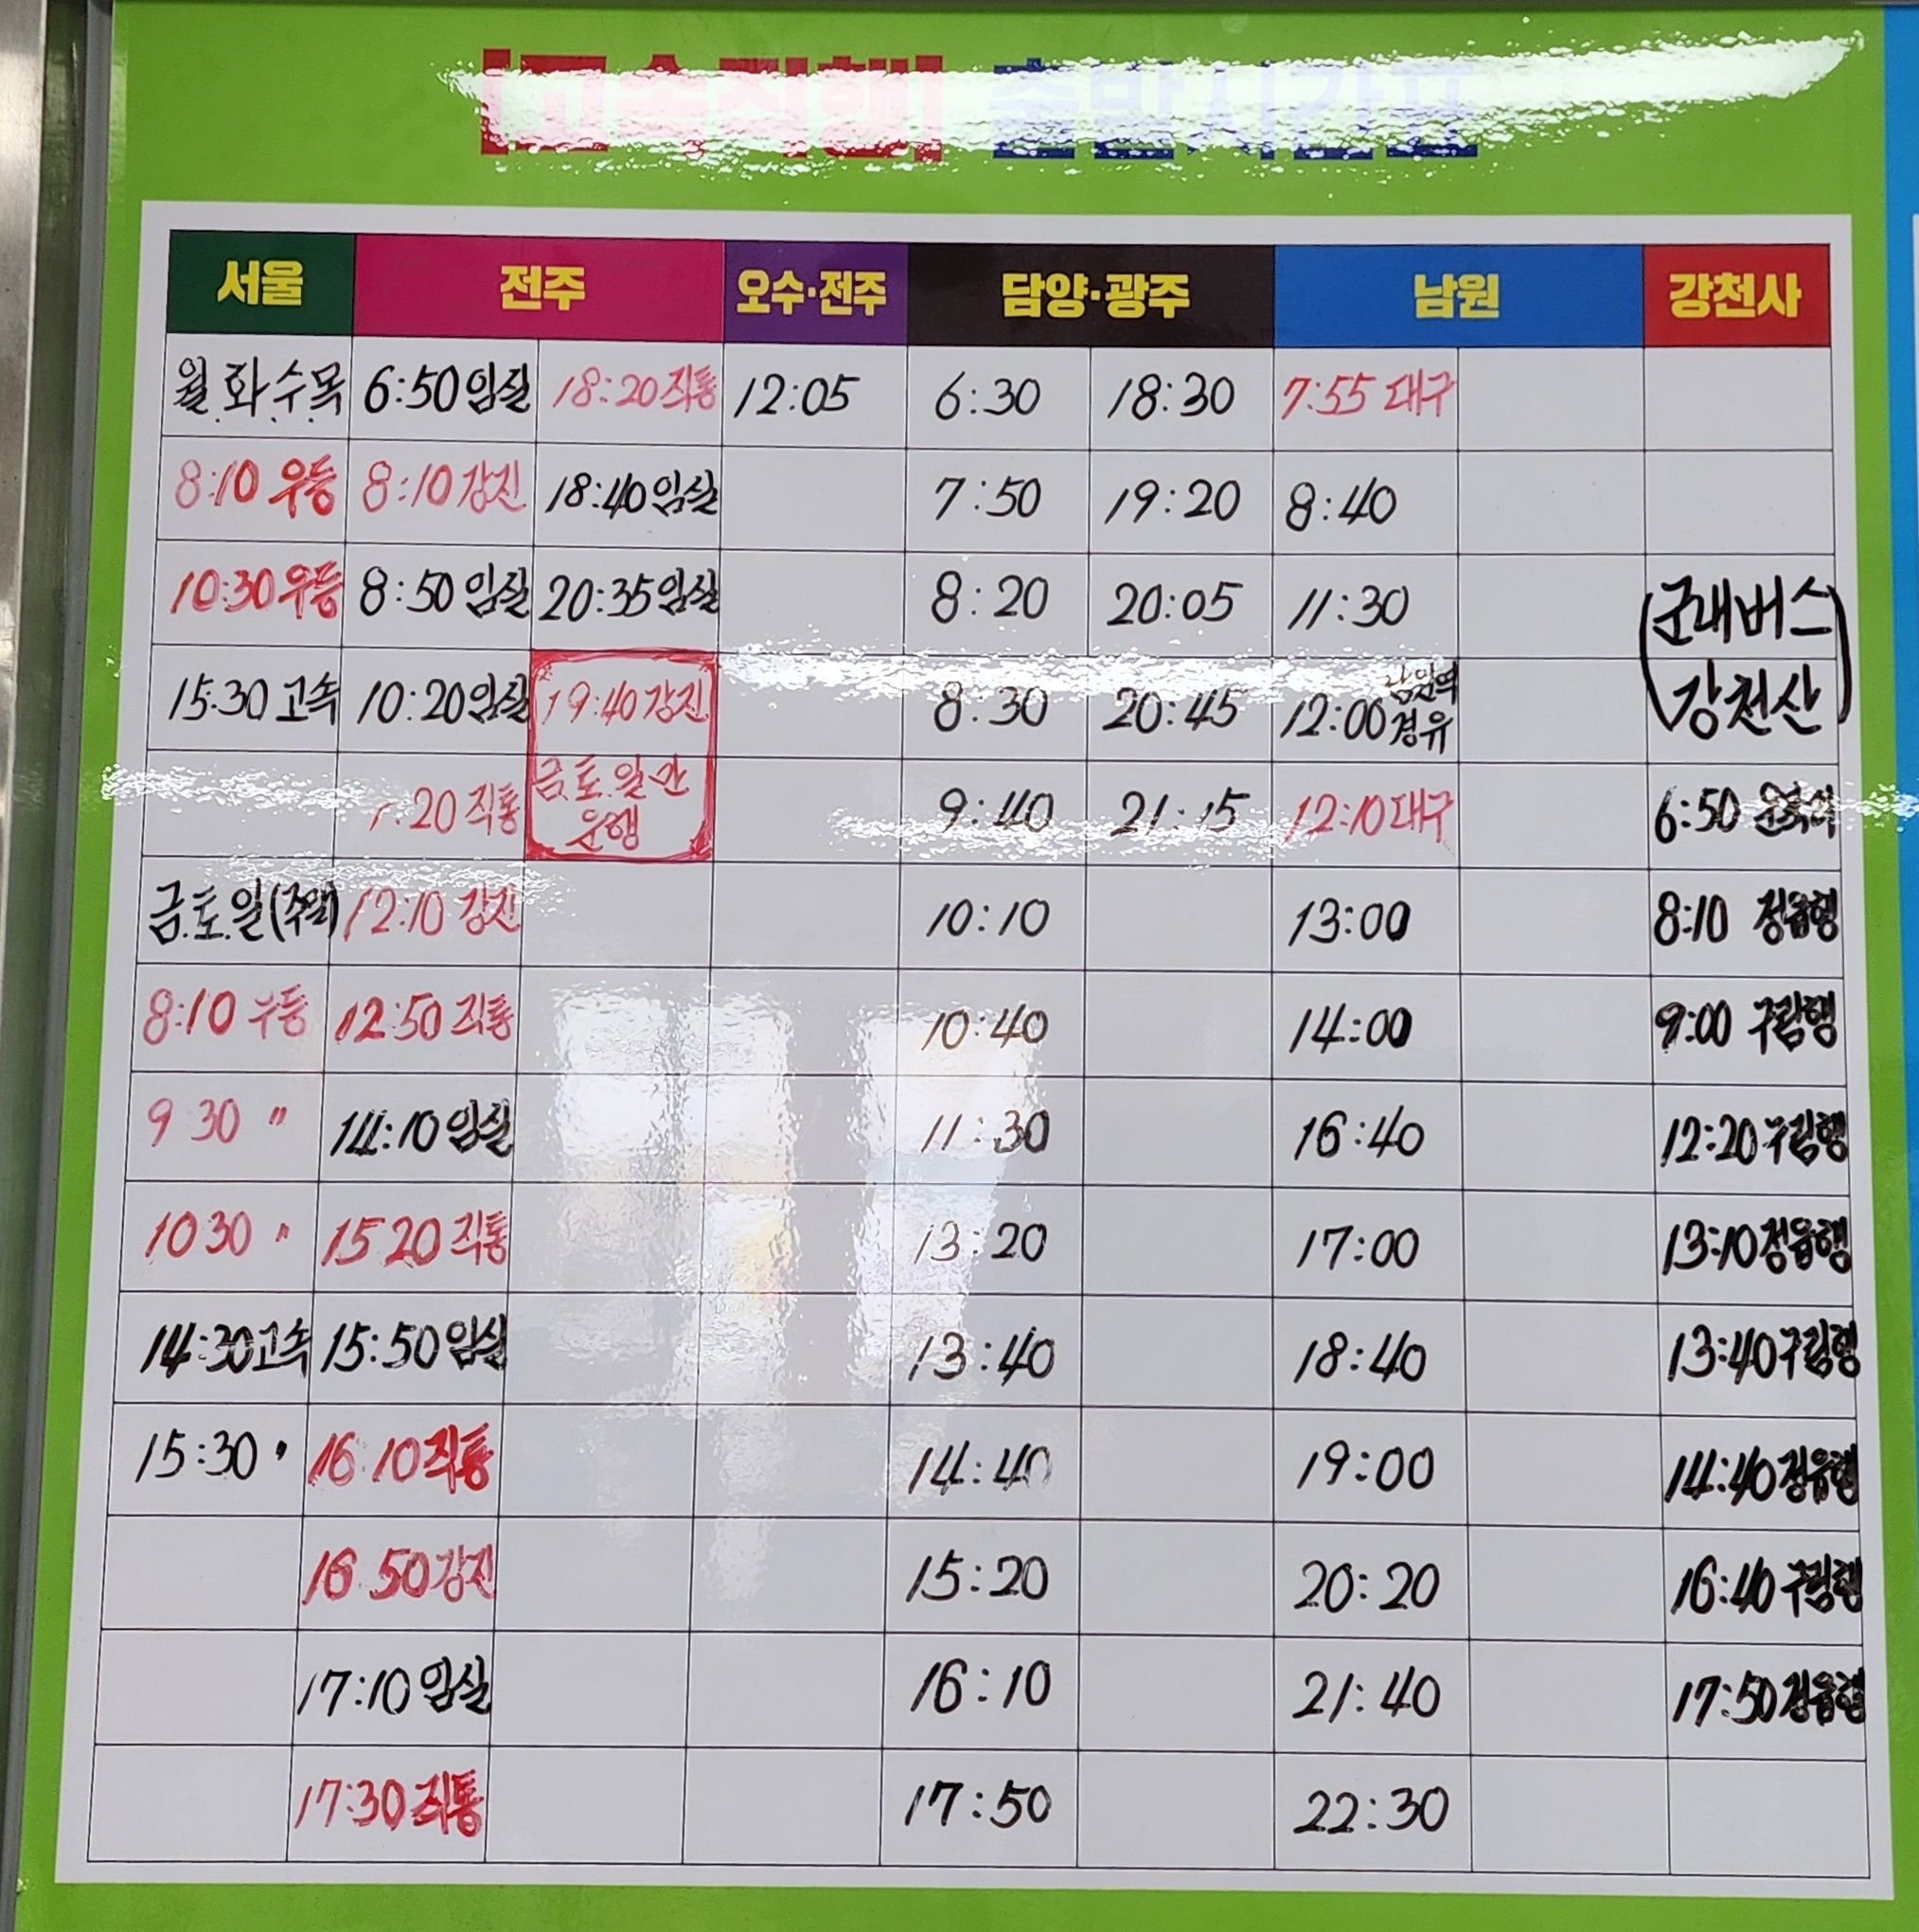 [고속직행] 출발시간표
서울 전주 오수·전주 담양·광주 남원 강천사
월.화.수.목 6:50 임실 18:20 직통 12:05 6:30 18:30 7:55 대구
8:10 우등 8:10 강진 18:40 임실 7:50 19:20 8:40
10:30 우등 8:50 임실 20:35 임실 8:20 20:05 11:30 (군내버스
15:30 고속 10:20 임실 19:40 강진 8:30 20:45 12:00 남원역 경유 강천산)
:20 직통 금.토.일만 운행 9:40 21:15 12:10 대구 6:50
금.토.일(주말) 12:10 강진 10:10 13:00 8:10 정읍행
8:10 우등 12:50 직통 10:40 14:00 9:00 구림행
9 30 〃 14:10 임실 11:30 16:40 12:20 구림행
10 30 〃 15 20 직통 13:20 17:00 13:10 정읍행
14:30 고속 15:50 임실 13:40 18:40 13:40 구림행
15:30 〃 16:10 직통 14:40 19:00 14:40 정읍행
16 50 강진 15:20 20:20 16:40 구림행
17:10 임실 16:10 21:40 17:50 정읍행
17:30 직통 17:50 22:30